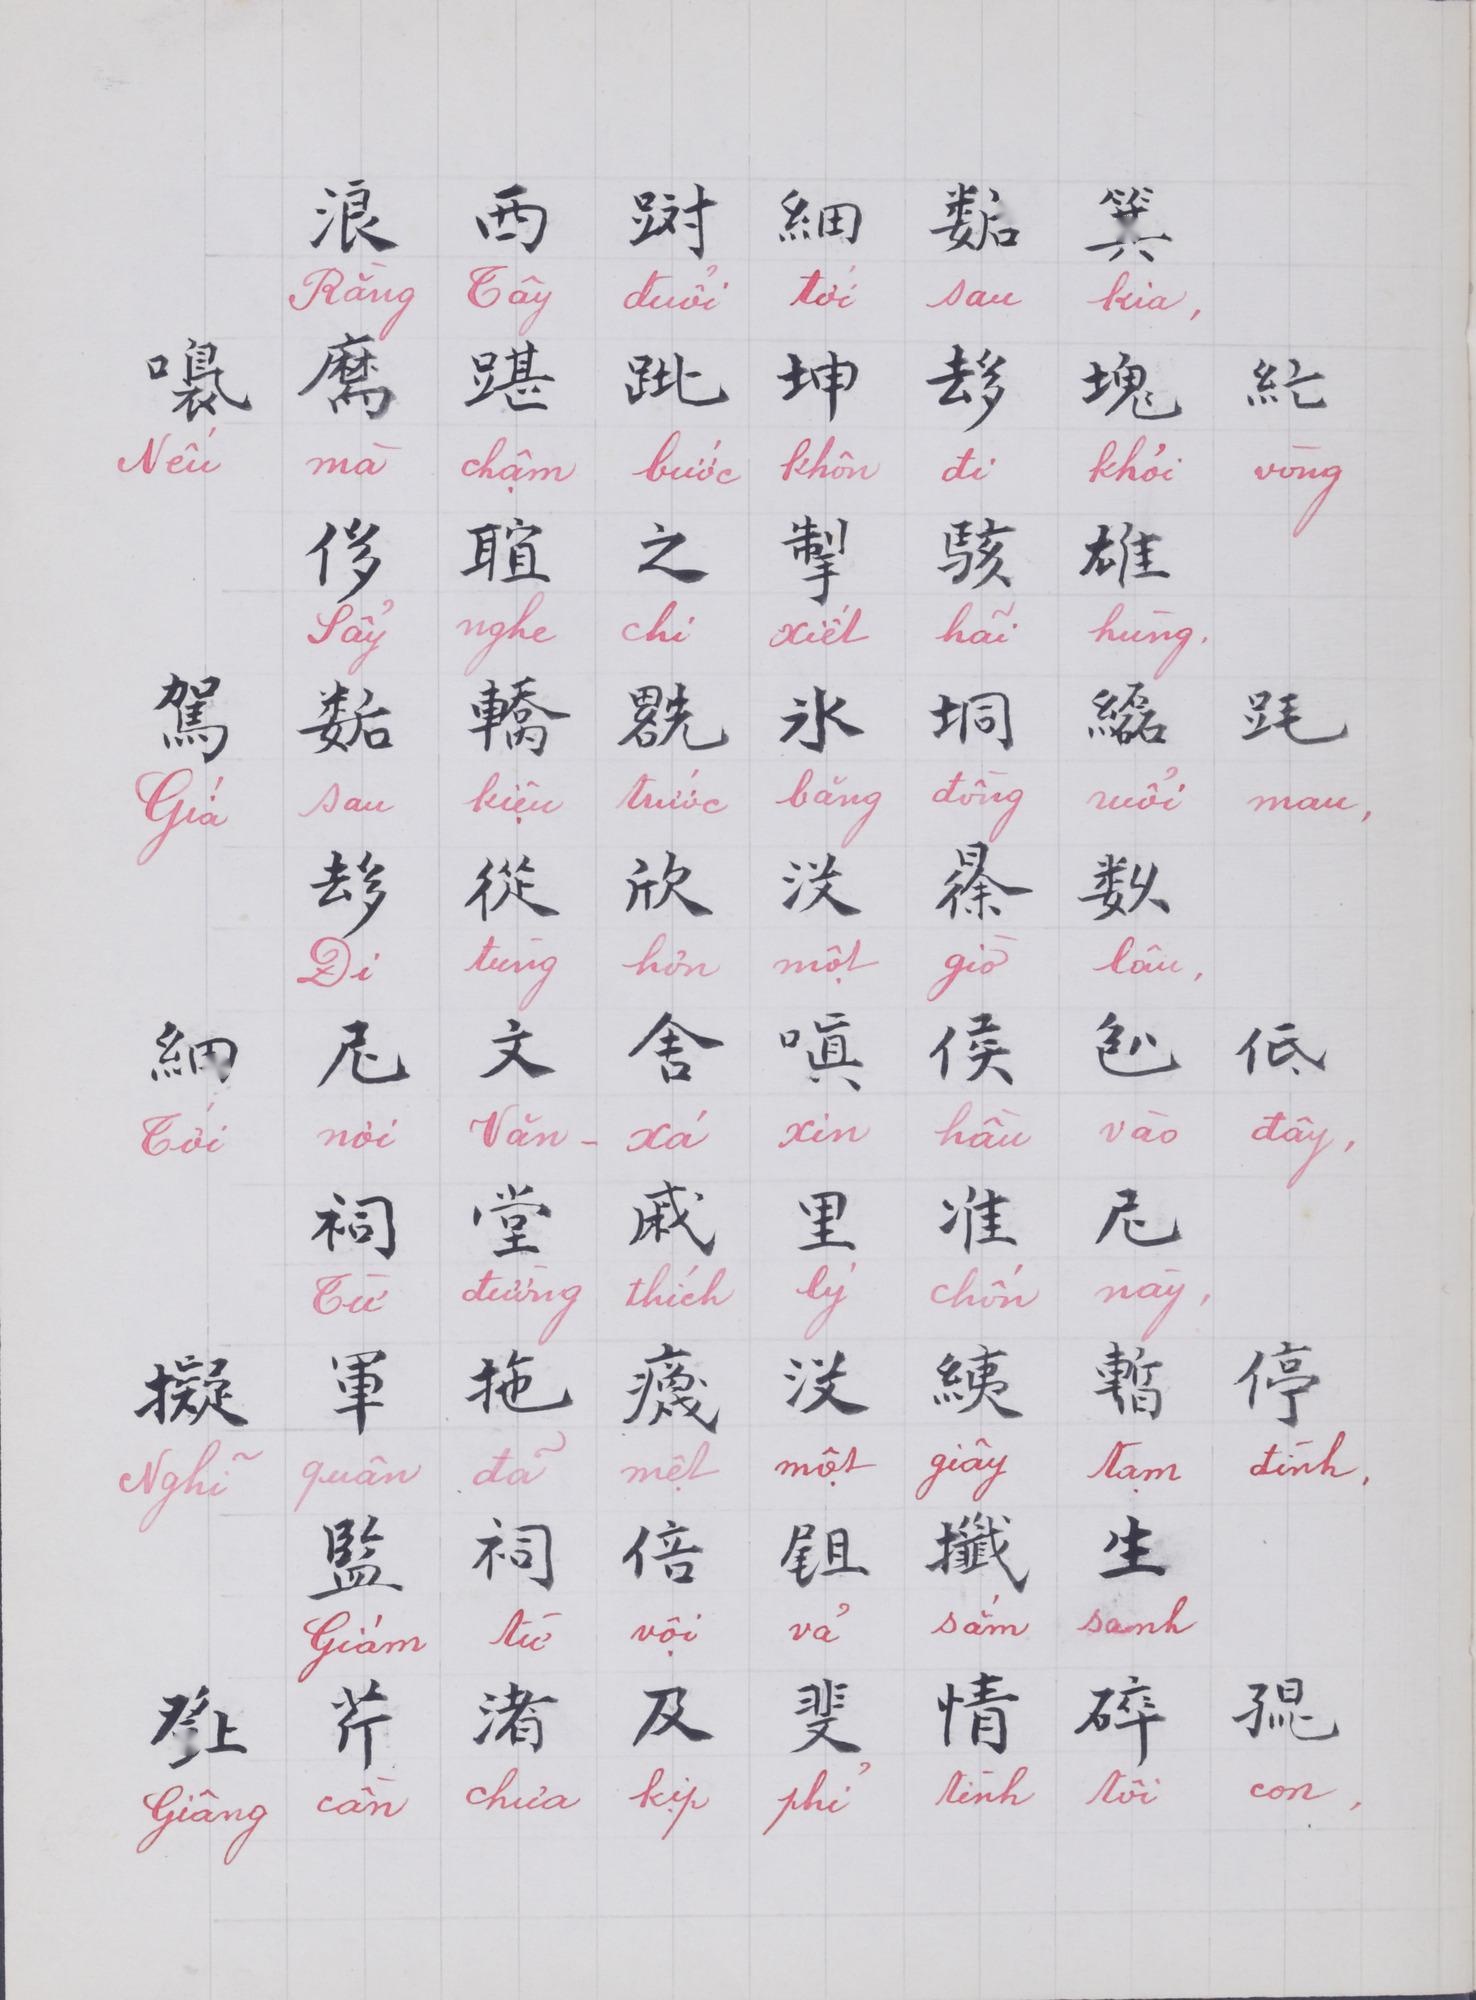 浪 西 𨃉 細 𢖖 箕
Rằng Tây đuổi tới sau kia,
嗅 麿 踸 𨀈 坤 𠫾 塊 紅
Nếu mà chậm bước khôn đi khỏi vòng
侈 𦖑 之 掣 駭 雄
Sẩy nghe chi xiết hãi hùng.
駕 𢖖 轎 𠓀 氷 垌 𦆆 𨁌
Giá sau kiệu trước băng đồng ruổi mau,
𠫾 從 欣 沒 𣇞 数
Đi tùng hơn một giờ lâu,
細 尼 文 舍 嗔 侯 𠓨 低
Tới nơi Văn-xá xin hầu vào đây,
祠 堂 戚 里 准 尼
Từ đường thích lý chốn này,
擬 軍 拖 𤻻 沒 𦁣 暫 停
Nghĩ quân đã mệt một giây tạm đình,
監 祠 倍 𡲤 攕 生
Giám từ vội vả sắm sanh
𤼸 芹 渚 及 斐 情 碎 𡥵
Giâng cần chưa kịp phỉ tình tôi con,